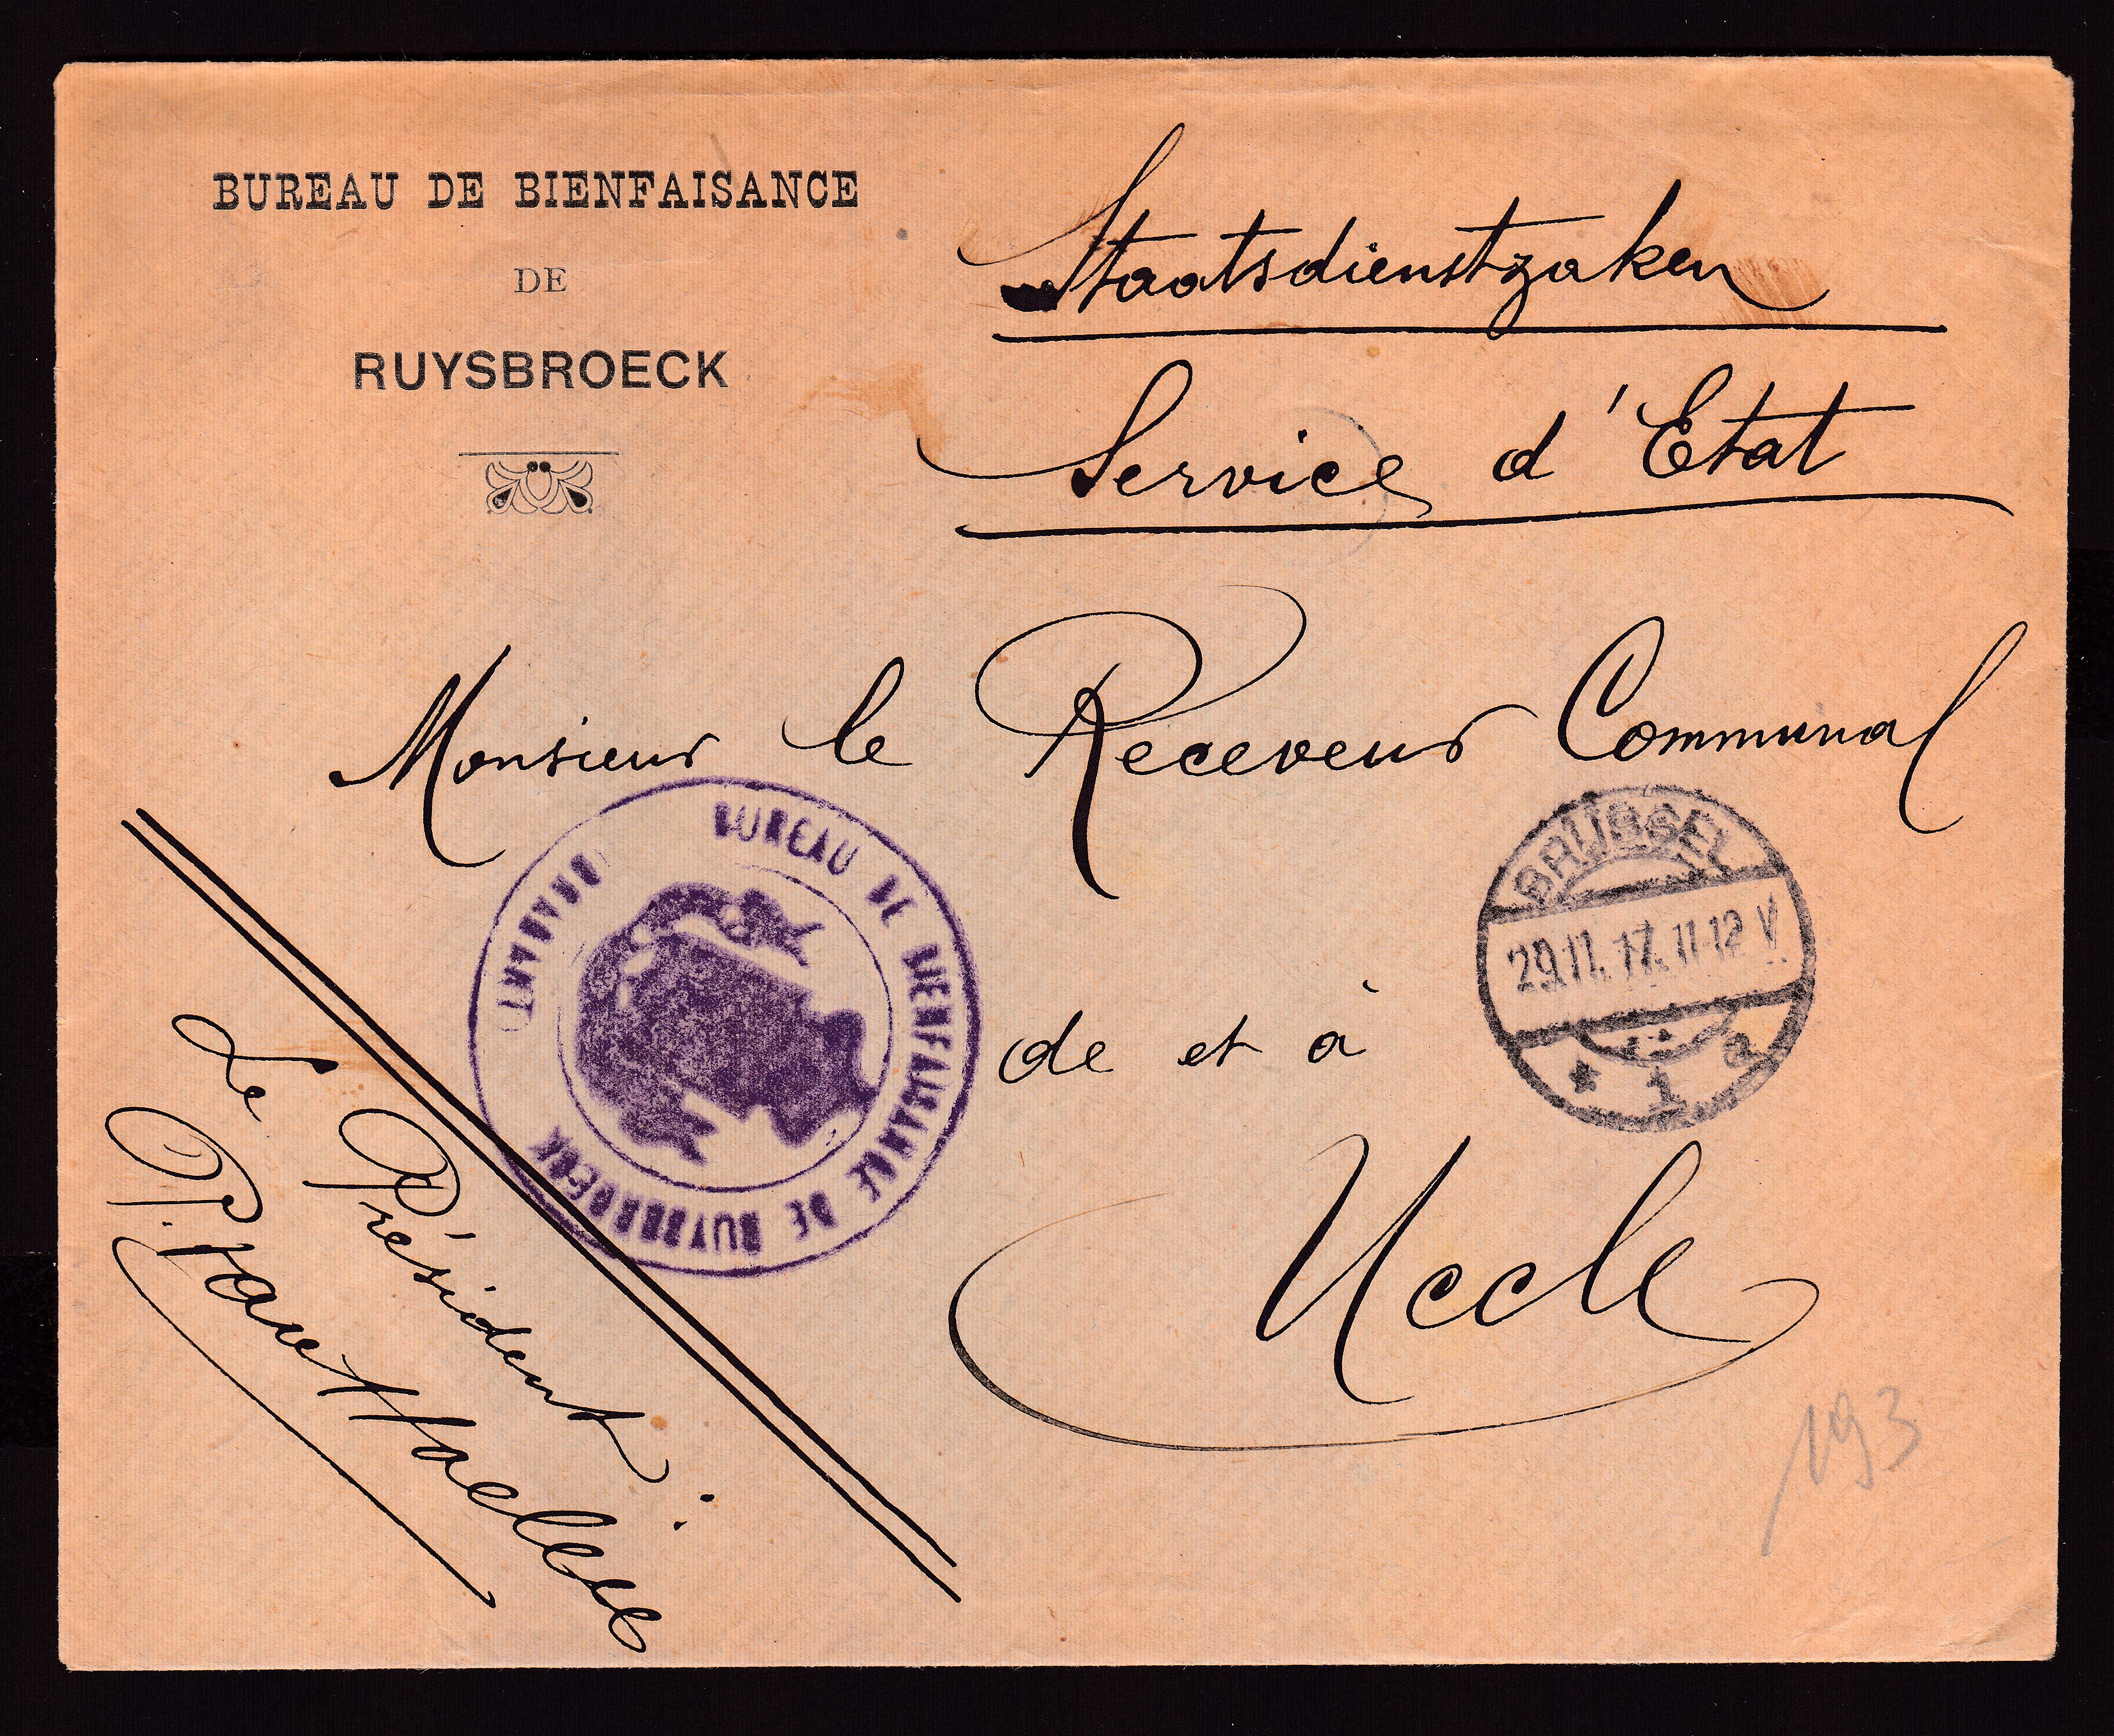 BUREAU DE BIENFAISANCE
DE
RUYSBROECK
Staatsdienstzaken
Service d'Etat
Monsieur le Receveur Communal
de et à
Uccle
BUREAU DE BIENFAISANCE DE RUYSBROECK
BRABANT
BRÜSSEL
29.11.17. 11-12 V.
* 1 a
Le Président:
P. Van
193